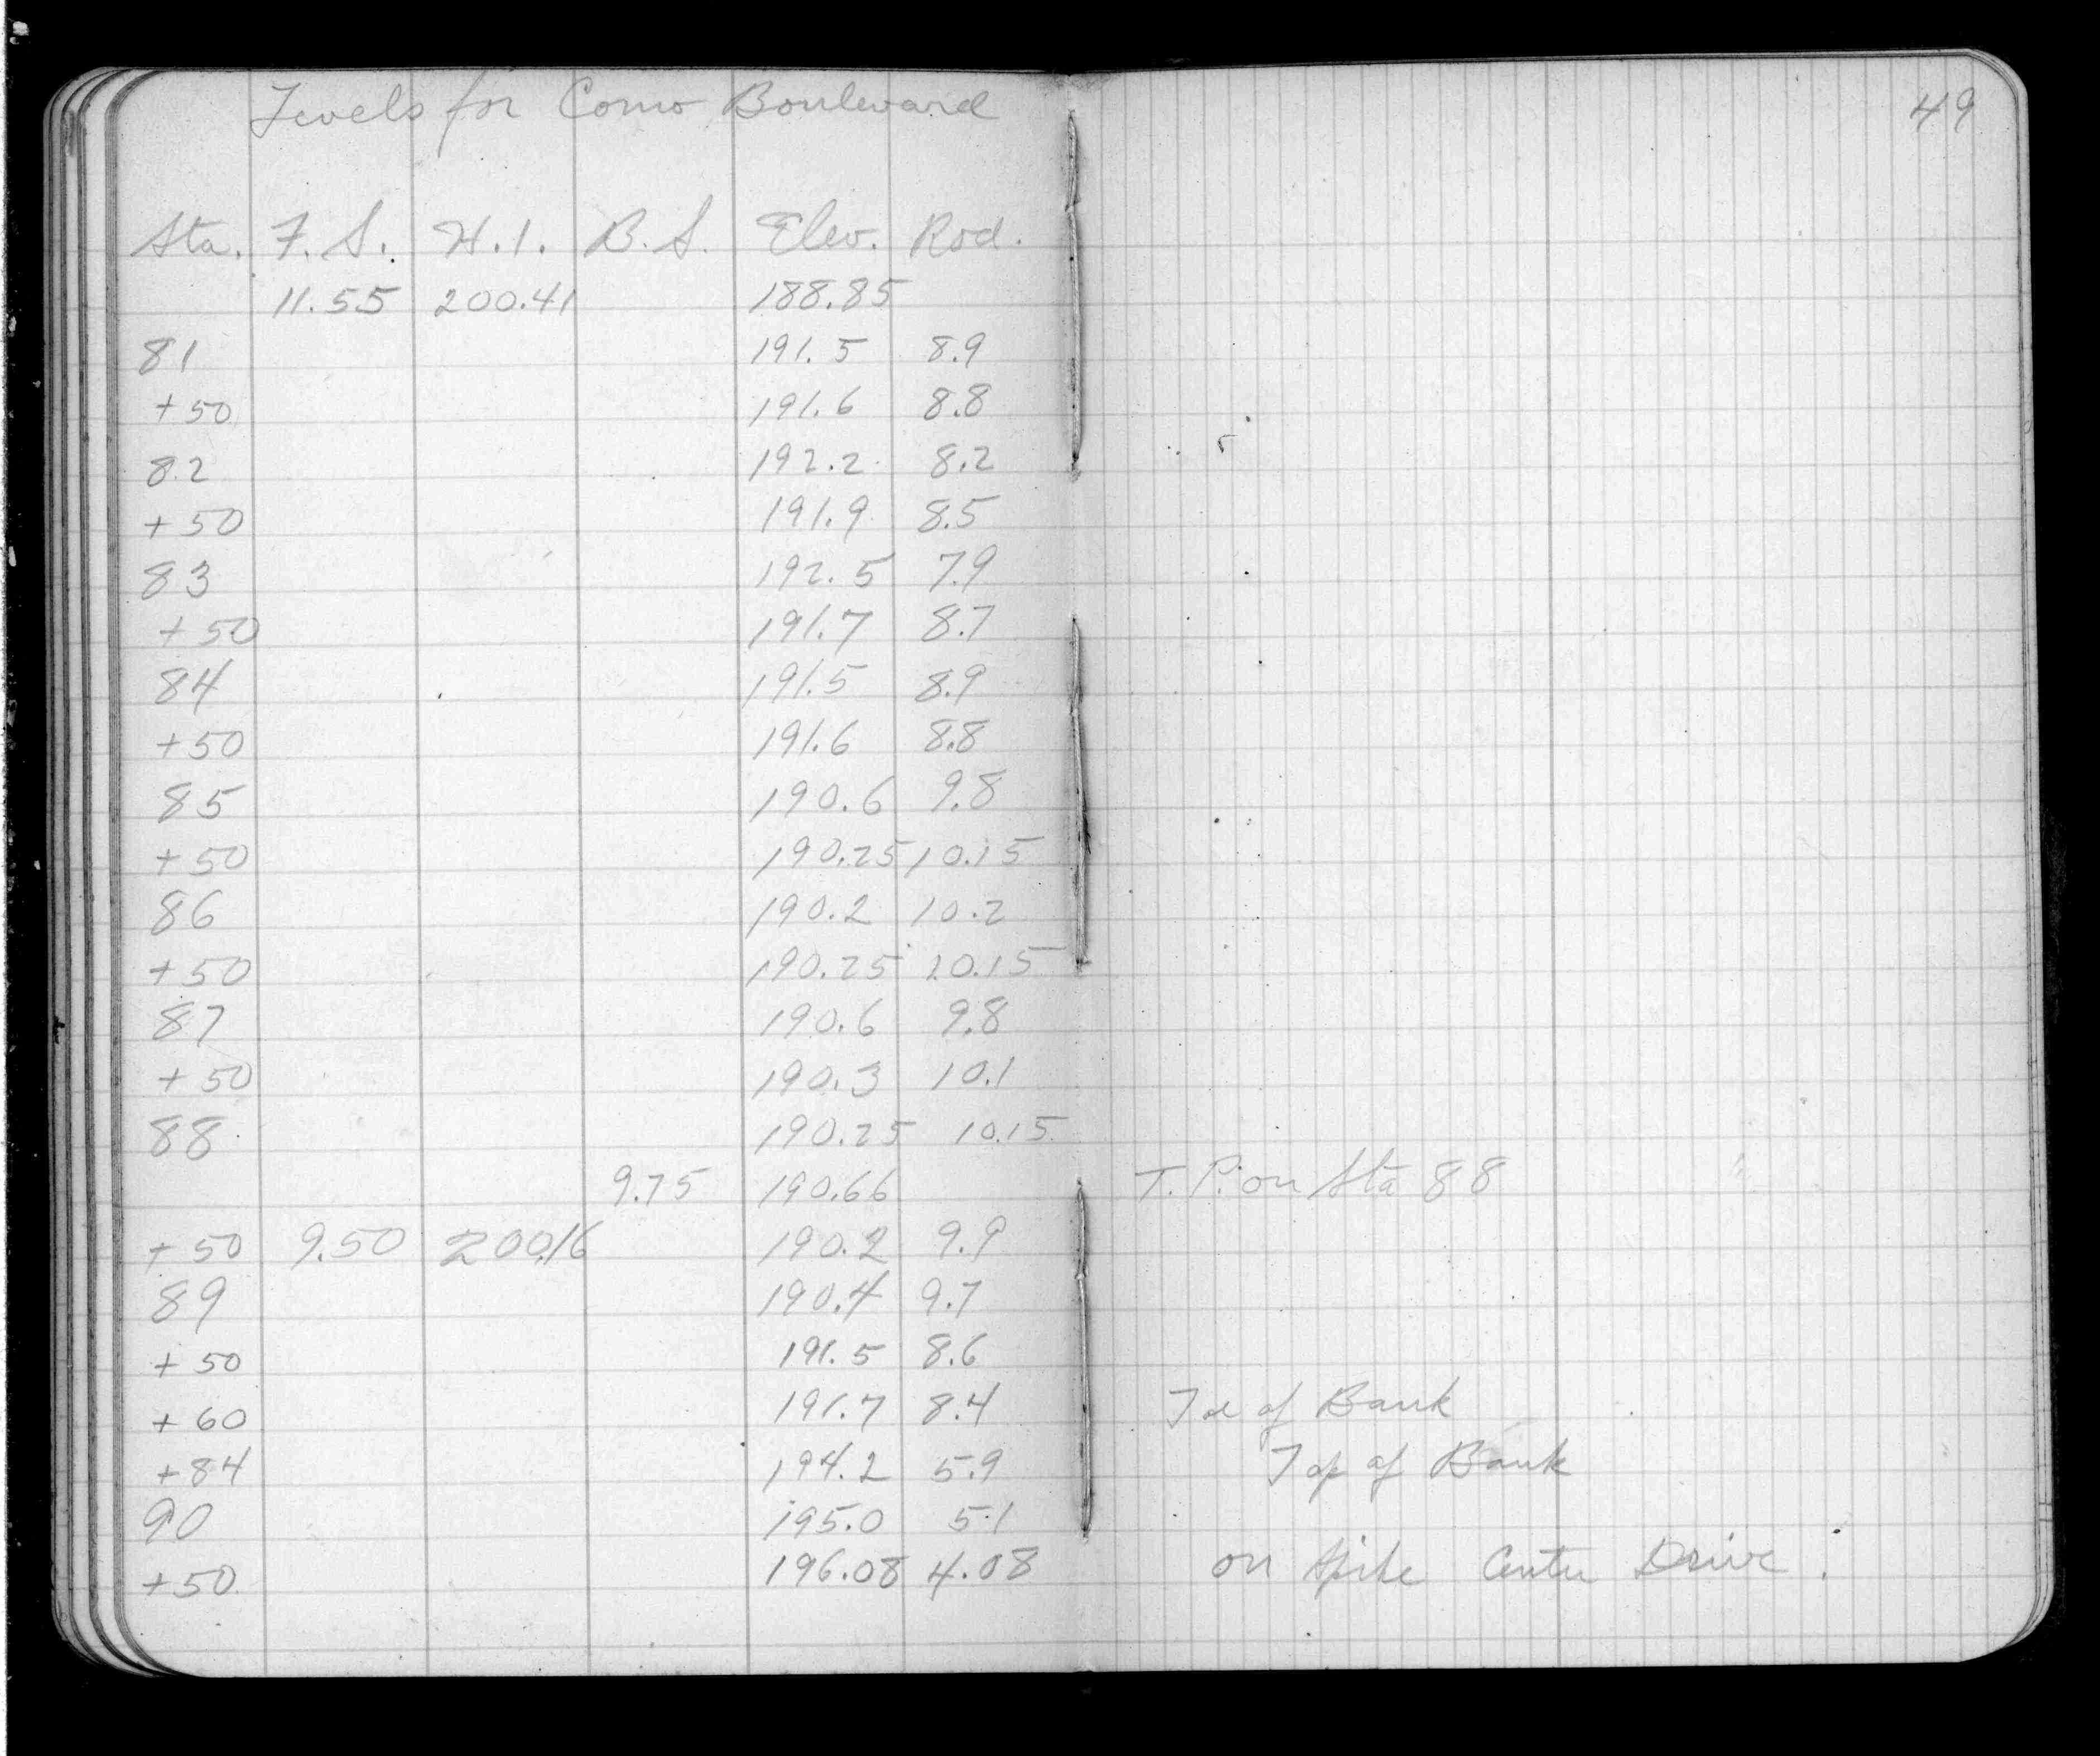 Levels for Como Boulevard
49
Sta. F.S. H.I. B.S. Elev. Rod.
11.55 200.41 188.85
81 191.5 8.9
+50 191.6 8.8
82 192.2 8.2
+50 191.9 8.5
83 192.5 7.9
+50 191.7 8.7
84 191.5 8.9
+50 191.6 8.8
85 190.6 9.8
+50 190.25 10.15
86 190.2 10.2
+50 190.25 10.15
87 190.6 9.8
+50 190.3 10.1
88 190.25 10.15
9.75 190.66 T.P. on Sta 88
+50 9.50 200.16 190.2 9.9
89 190.4 9.7
+50 191.5 8.6
+60 191.7 8.4 Toe of Bank
+84 194.2 5.9 Top of Bank
90 195.0 5.1
+50 196.08 4.08 on Spike Center Drive.